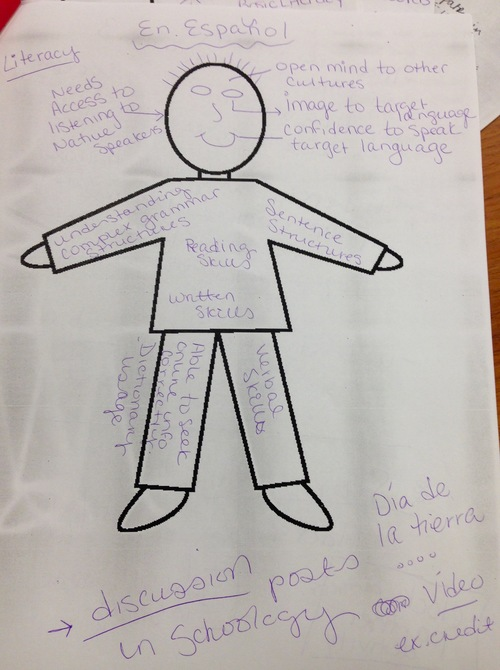 En Español
Literacy
Needs
Access to
listening to
Native
Speakers
open mind to other
cultures
image to target
language
confidence to speak
target language
understanding
complex grammar
structures
Sentence
Structures
Reading
Skills
written
Skills
Able to seek
online info
correctly.
Dictionary
usage
Verbal
Skills
Día de
la tierra
→ discussion posts
in Schoology
Vídeo
ex.credit